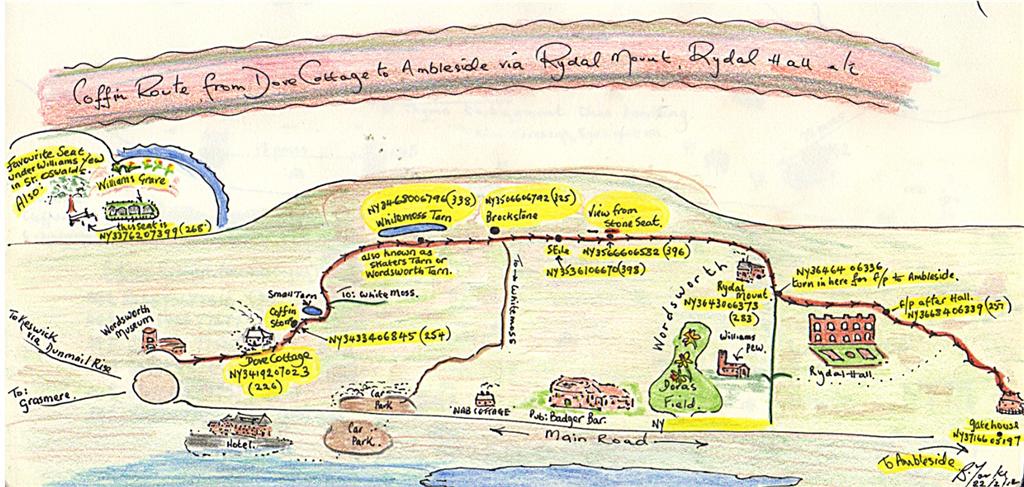 Coffin Route, from Dove Cottage to Ambleside via Rydal Mount, Rydal Hall etc
Favourite Seat
under Williams Yew
in St. Oswalds
Also:
Williams Grave
this seat is
NY3376207399 (268)
NY3468006796 (338)
Whitemoss Tarn
also known as
Skaters Tarn or
Wordsworth Tarn.
NY3506606792 (325)
Brockstone
View from
Stone Seat.
NY3566606582 (396)
Stile
NY3536106670 (398)
Small Tarn
To: White Moss.
Coffin
Stone
NY3433406845 (254)
To → Whitemoss
Wordsworth
Museum
Dove Cottage
NY3419207023
(226)
To Keswick
via Dunmail Rise
To:
Grasmere.
Hotel.
Car
Park
Car
Park.
NAB COTTAGE
Pub: Badger Bar.
Main Road
Wordsworth
Doras
Field.
NY
Rydal
Mount
NY3643006373
(283)
Williams
Pew.
NY36464 06336
turn in here for f/p to Ambleside.
f/p after Hall.
NY3668406339 (257)
Rydal-Hall.
gatehouse
NY3716605197
To Ambleside
22/2/12